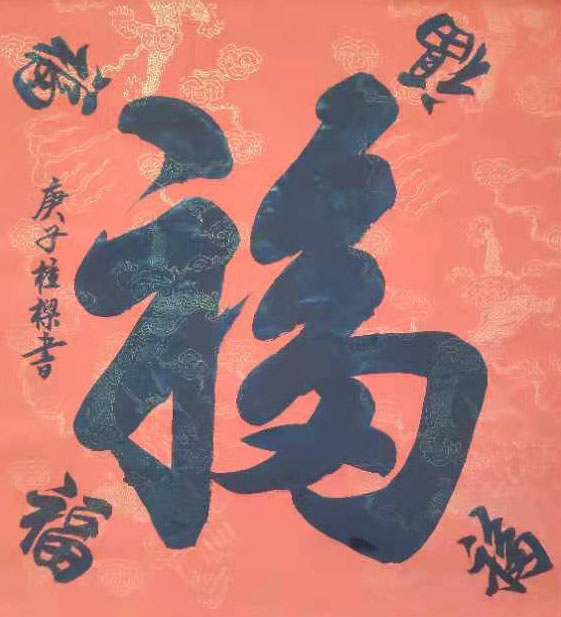 福
庚子桂樑書
福
福